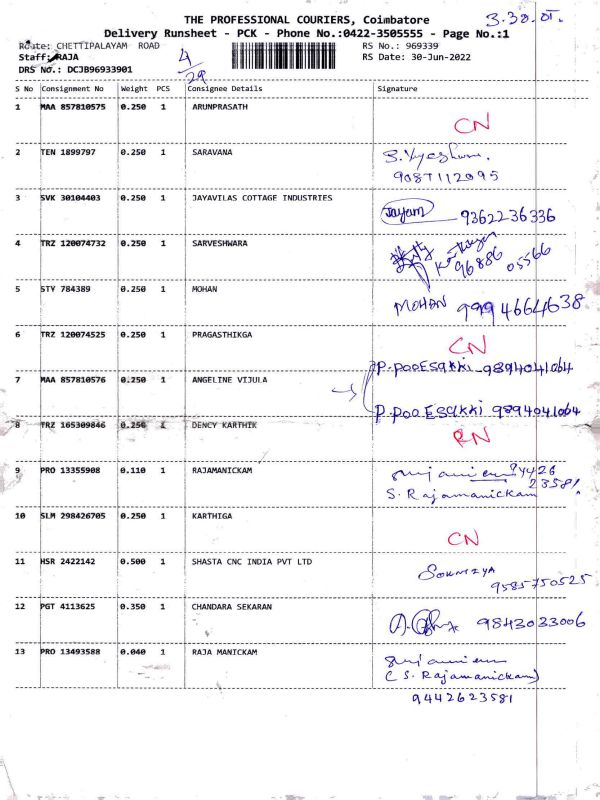 THE PROFESSIONAL COURIERS, Coimbatore 3.30.
Delivery Runsheet - PCK - Phone No.:0422-3505555 - Page No.:1
Route: CHETTIPALAYAM ROAD RS No.: 969339
Staff: RAJA 4/29 RS Date: 30-Jun-2022
DRS No.: DCJB96933901
S No Consignment No Weight PCS Consignee Details Signature
1 MAA 857810575 0.250 1 ARUNPRASATH
CN
2 TEN 1899797 0.250 1 SARAVANA
9087112095
3 SVK 30104403 0.250 1 JAYAVILAS COTTAGE INDUSTRIES
Jayam 9362236336
4 TRZ 120074732 0.250 1 SARVESHWARA
96886 05566
5 STY 784389 0.250 1 MOHAN
MOHAN 9994664638
6 TRZ 120074525 0.250 1 PRAGASTHIKGA
CN
P.POOESAKKI-9894041064
7 MAA 857810576 0.250 1 ANGELINE VIJULA
P.POOESAKKI 9894041064
8 TRZ 165309846 0.250 1 DENCY KARTHIK
RN
9 PRO 13355908 0.110 1 RAJAMANICKAM
94426
23581
S. Rajamanickam
10 SLM 298426705 0.250 1 KARTHIGA
CN
11 HSR 2422142 0.500 1 SHASTA CNC INDIA PVT LTD
SOUMIYA
9585750525
12 PGT 4113625 0.350 1 CHANDARA SEKARAN
9843033006
13 PRO 13493588 0.040 1 RAJA MANICKAM
(S. Rajamanickam)
9442623581